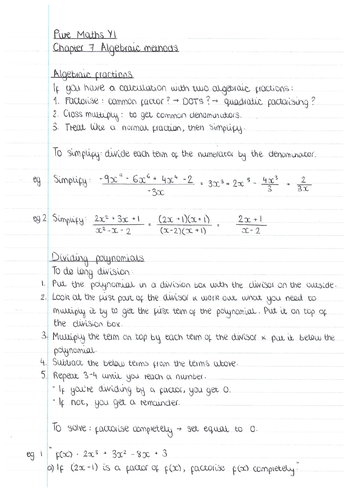 Pure Maths Y1
Chapter 7 Algebraic methods
Algebraic fractions
If you have a calculation with two algebraic fractions:
1. Factorise: common factor? → DOTS? → quadratic factorising?
2. Cross multiply: to get common denominators.
3. Treat like a normal fraction, then simplify.
To simplify: divide each term of the numerator by the denominator.
eg Simplify: (-9x⁹ - 6x⁶ + 4x⁴ - 2)/(-3x) = 3x⁸ + 2x⁵ - 4x³/3 + 2/3x
eg 2 Simplify: (2x² + 3x + 1)/(x² - x - 2) = ((2x + 1)(x + 1))/((x-2)(x + 1)) = (2x + 1)/(x - 2)
Dividing polynomials
To do long division:
1. Put the polynomial in a division box with the divisor on the outside.
2. Look at the first part of the divisor & work out what you need to
multiply it by to get the first term of the polynomial. Put it on top of
the division box.
3. Multiply the term on top by each term of the divisor & put it below the
polynomial.
4. Subtract the below terms from the terms above.
5. Repeat 3-4 until you reach a number.
- If you're dividing by a factor, you get 0.
- If not, you get a remainder.
To solve: factorise completely → set equal to 0.
eg 1 "f(x) = 2x³ + 3x² - 8x + 3
a) If (2x-1) is a factor of f(x), factorise f(x) completely."